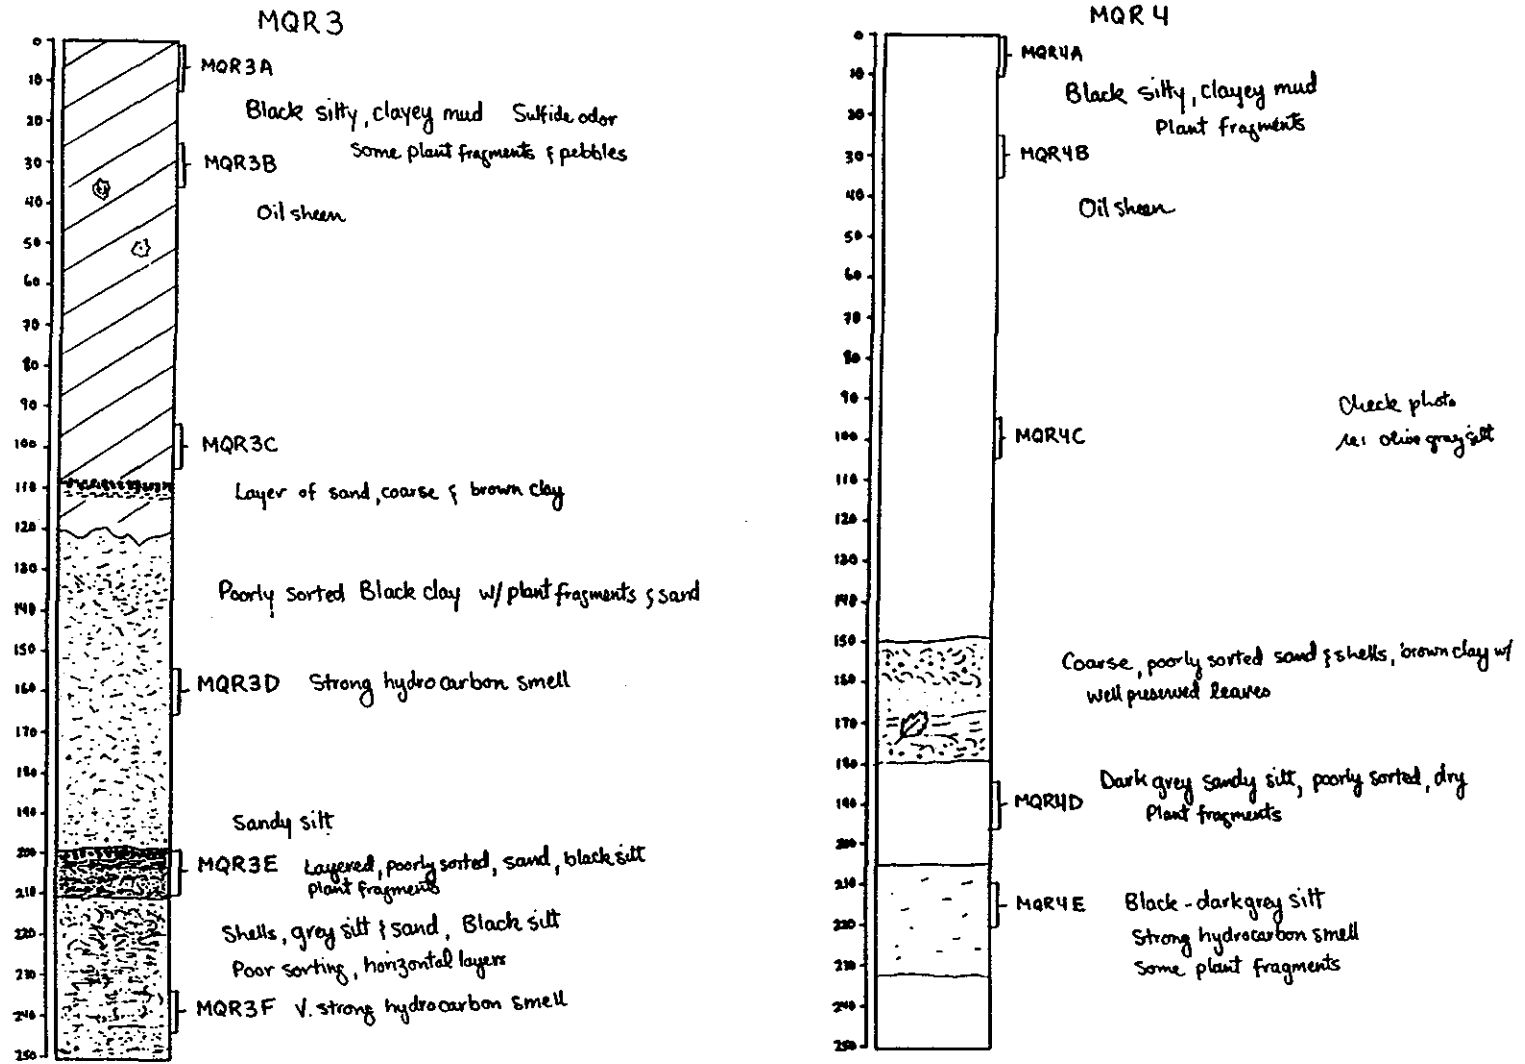 MQR3
0
10
20
30
40
50
60
70
80
90
100
110
120
130
140
150
160
170
180
190
200
210
220
230
240
250
MQR3A
Black silty, clayey mud Sulfide odor
Some plant fragments & pebbles
MQR3B
Oil sheen
MQR3C
Layer of sand, coarse & brown clay
Poorly sorted Black clay w/ plant fragments & sand
MQR3D Strong hydrocarbon smell
Sandy silt
MQR3E Layered, poorly sorted, sand, black silt
plant fragments
Shells, grey silt & sand, Black silt
Poor sorting, horizontal layers
MQR3F V. strong hydrocarbon smell
MQR4
0
10
20
30
40
50
60
70
80
90
100
110
120
130
140
150
160
170
180
190
200
210
220
230
240
250
MQR4A
Black silty, clayey mud
Plant fragments
MQR4B
Oil sheen
Check photo
re: olive gray silt
MQR4C
Coarse, poorly sorted sand & shells, brown clay w/
well preserved leaves
MQR4D Dark grey sandy silt, poorly sorted, dry
Plant fragments
MQR4E Black-dark grey silt
Strong hydrocarbon smell
Some plant fragments